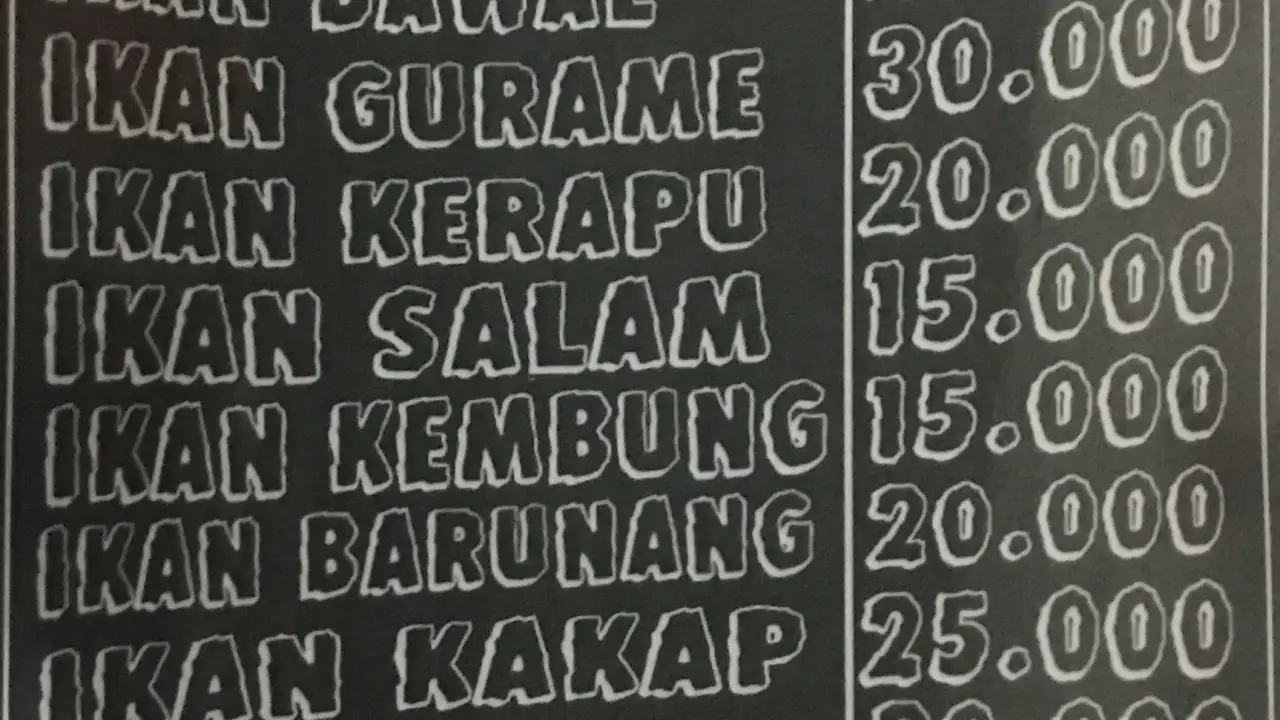 IKAN BAWAL
IKAN GURAME 30.000
IKAN KERAPU 20.000
IKAN SALAM 15.000
IKAN KEMBUNG 15.000
IKAN BARUNANG 20.000
IKAN KAKAP 25.000